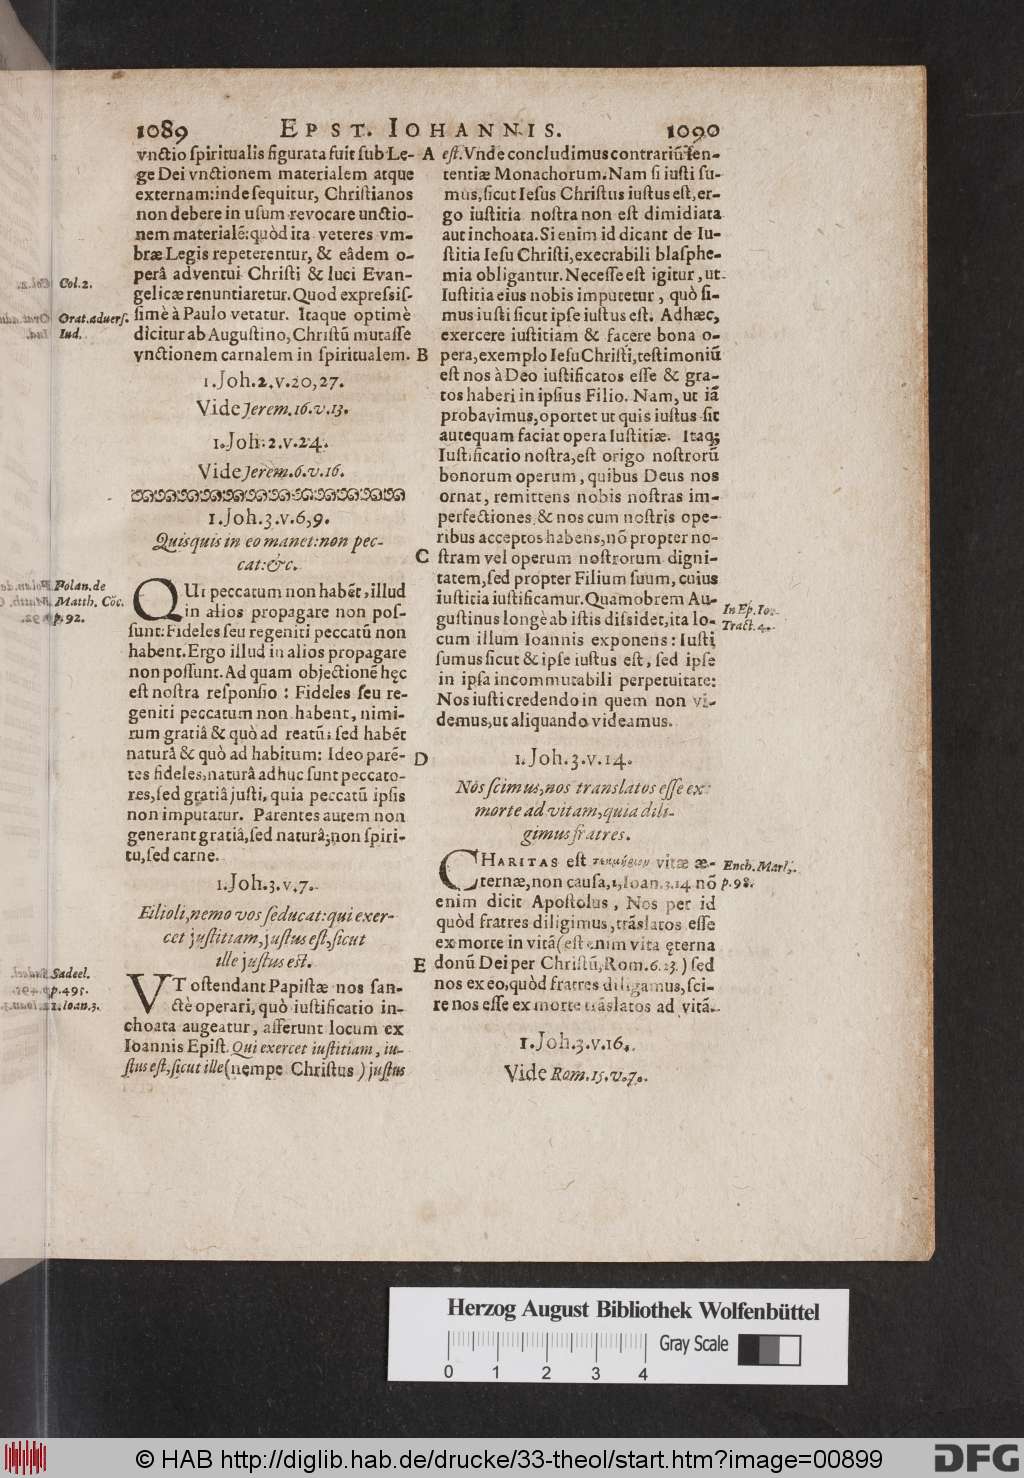 1089 EPIST. IOHANNIS. 1090
vnctio ſpiritualis figurata fuit ſub Le-
ge Dei vnctionem materialem atque
externam: inde ſequitur, Chriſtianos
non debere in uſum revocare unctio-
nem materialẽ: quòd ita veteres vm-
bræ Legis repeterentur, & eâdem o-
perâ adventui Chriſti & luci Evan-
Col.2.
gelicæ renuntiaretur. Quod expreſsiſ-
ſimè à Paulo vetatur. Itaque optimè
Orat.adverſ.
dicitur ab Auguſtino, Chriſtũ mutaſſe
Iud.
vnctionem carnalem in ſpiritualem.
1.Joh.2.v.20,27.
Vide Jerem.16.v.13.
1.Joh.2.v.24.
Vide Jerem.6.v.16.
1.Joh.3.v.6,9.
Quisquis in eo manet: non pec-
cat: &c.
QUi peccatum non habẽt, illud
Polan.de
in alios propagare non poſ-
Matth. Cõc.
ſunt: Fideles ſeu regeniti peccatũ non
p.92.
habent. Ergo illud in alios propagare
non poſſunt. Ad quam objectionẽ hęc
eſt noſtra reſponſio: Fideles ſeu re-
geniti peccatum non habent, nimi-
rum gratiâ & quò ad reatũ; ſed habẽt
naturâ & quò ad habitum: Ideo parẽ-
tes fideles, naturâ adhuc ſunt peccato-
res, ſed gratiâ juſti, quia peccatũ ipſis
non imputatur. Parentes autem non
generant gratiâ, ſed naturâ; non ſpiri-
tu, ſed carne.
1.Joh.3.v.7.
Filioli, nemo vos ſeducat: qui exer-
cet juſtitiam, juſtus eſt, ſicut
ille juſtus eſt.
VT oſtendant Papiſtæ nos ſan-
Sadeel.
ctè operari, quò iuſtificatio in-
p.495.
choata augeatur, afferunt locum ex
1.Ioan.3.
Ioannis Epiſt. Qui exercet iuſtitiam, iu-
ſtus eſt, ſicut ille (nempe Chriſtus) juſtus
A
B
C
D
E
eſt. Vnde concludimus contrariũ ſen-
tentiæ Monachorum. Nam ſi iuſti ſu-
mus, ſicut Ieſus Chriſtus iuſtus eſt, er-
go iuſtitia noſtra non eſt dimidiata
aut inchoata. Si enim id dicant de Iu-
ſtitia Ieſu Chriſti, execrabili blaſphe-
mia obligantur. Neceſſe eſt igitur, ut
Iuſtitia eius nobis imputetur, quò ſi-
mus iuſti ſicut ipſe iuſtus eſt. Adhæc,
exercere iuſtitiam & facere bona o-
pera, exemplo Ieſu Chriſti, teſtimoniũ
eſt nos à Deo iuſtificatos eſſe & gra-
tos haberi in ipſius Filio. Nam, ut iã
probavimus, oportet ut quis iuſtus ſit
autequam faciat opera Iuſtitiæ. Itaq;
Iuſtificatio noſtra, eſt origo noſtrorũ
bonorum operum, quibus Deus nos
ornat, remittens nobis noſtras im-
perfectiones & nos cum noſtris ope-
ribus acceptos habens, nõ propter no-
ſtram vel operum noſtrorum digni-
tatem, ſed propter Filium ſuum, cuius
iuſtitia iuſtificamur. Quamobrem Au-
In Ep. Io.
guſtinus longè ab iſtis diſsidet, ita lo-
Tract.4.
cum illum Ioannis exponens: Iuſti
ſumus ſicut & ipſe iuſtus eſt, ſed ipſe
in ipſa incommutabili perpetuitate:
Nos iuſti credendo in quem non vi-
demus, ut aliquando videamus.
1.Joh.3.v.14.
Nos ſcimus, nos translatos eſſe ex
morte ad vitam, quia dili-
gimus fratres.
CHARITAS eſt τεκμήριον vitæ æ-
Ench. Marl.
ternæ, non cauſa, 1, Ioan.3.14 nõ
p.98.
enim dicit Apoſtolus, Nos per id
quòd fratres diligimus, trãslatos eſſe
ex morte in vitã (eſt enim vita ęterna
donũ Dei per Chriſtũ, Rom.6.23.) ſed
nos ex eo, quòd fratres diligamus, ſci-
re nos eſſe ex morte trãslatos ad vitã.
1.Joh.3.v.16.
Vide Rom.15.v.7.
Herzog August Bibliothek Wolfenbüttel
Gray Scale
0 1 2 3 4
© HAB http://diglib.hab.de/drucke/33-theol/start.htm?image=00899
DFG